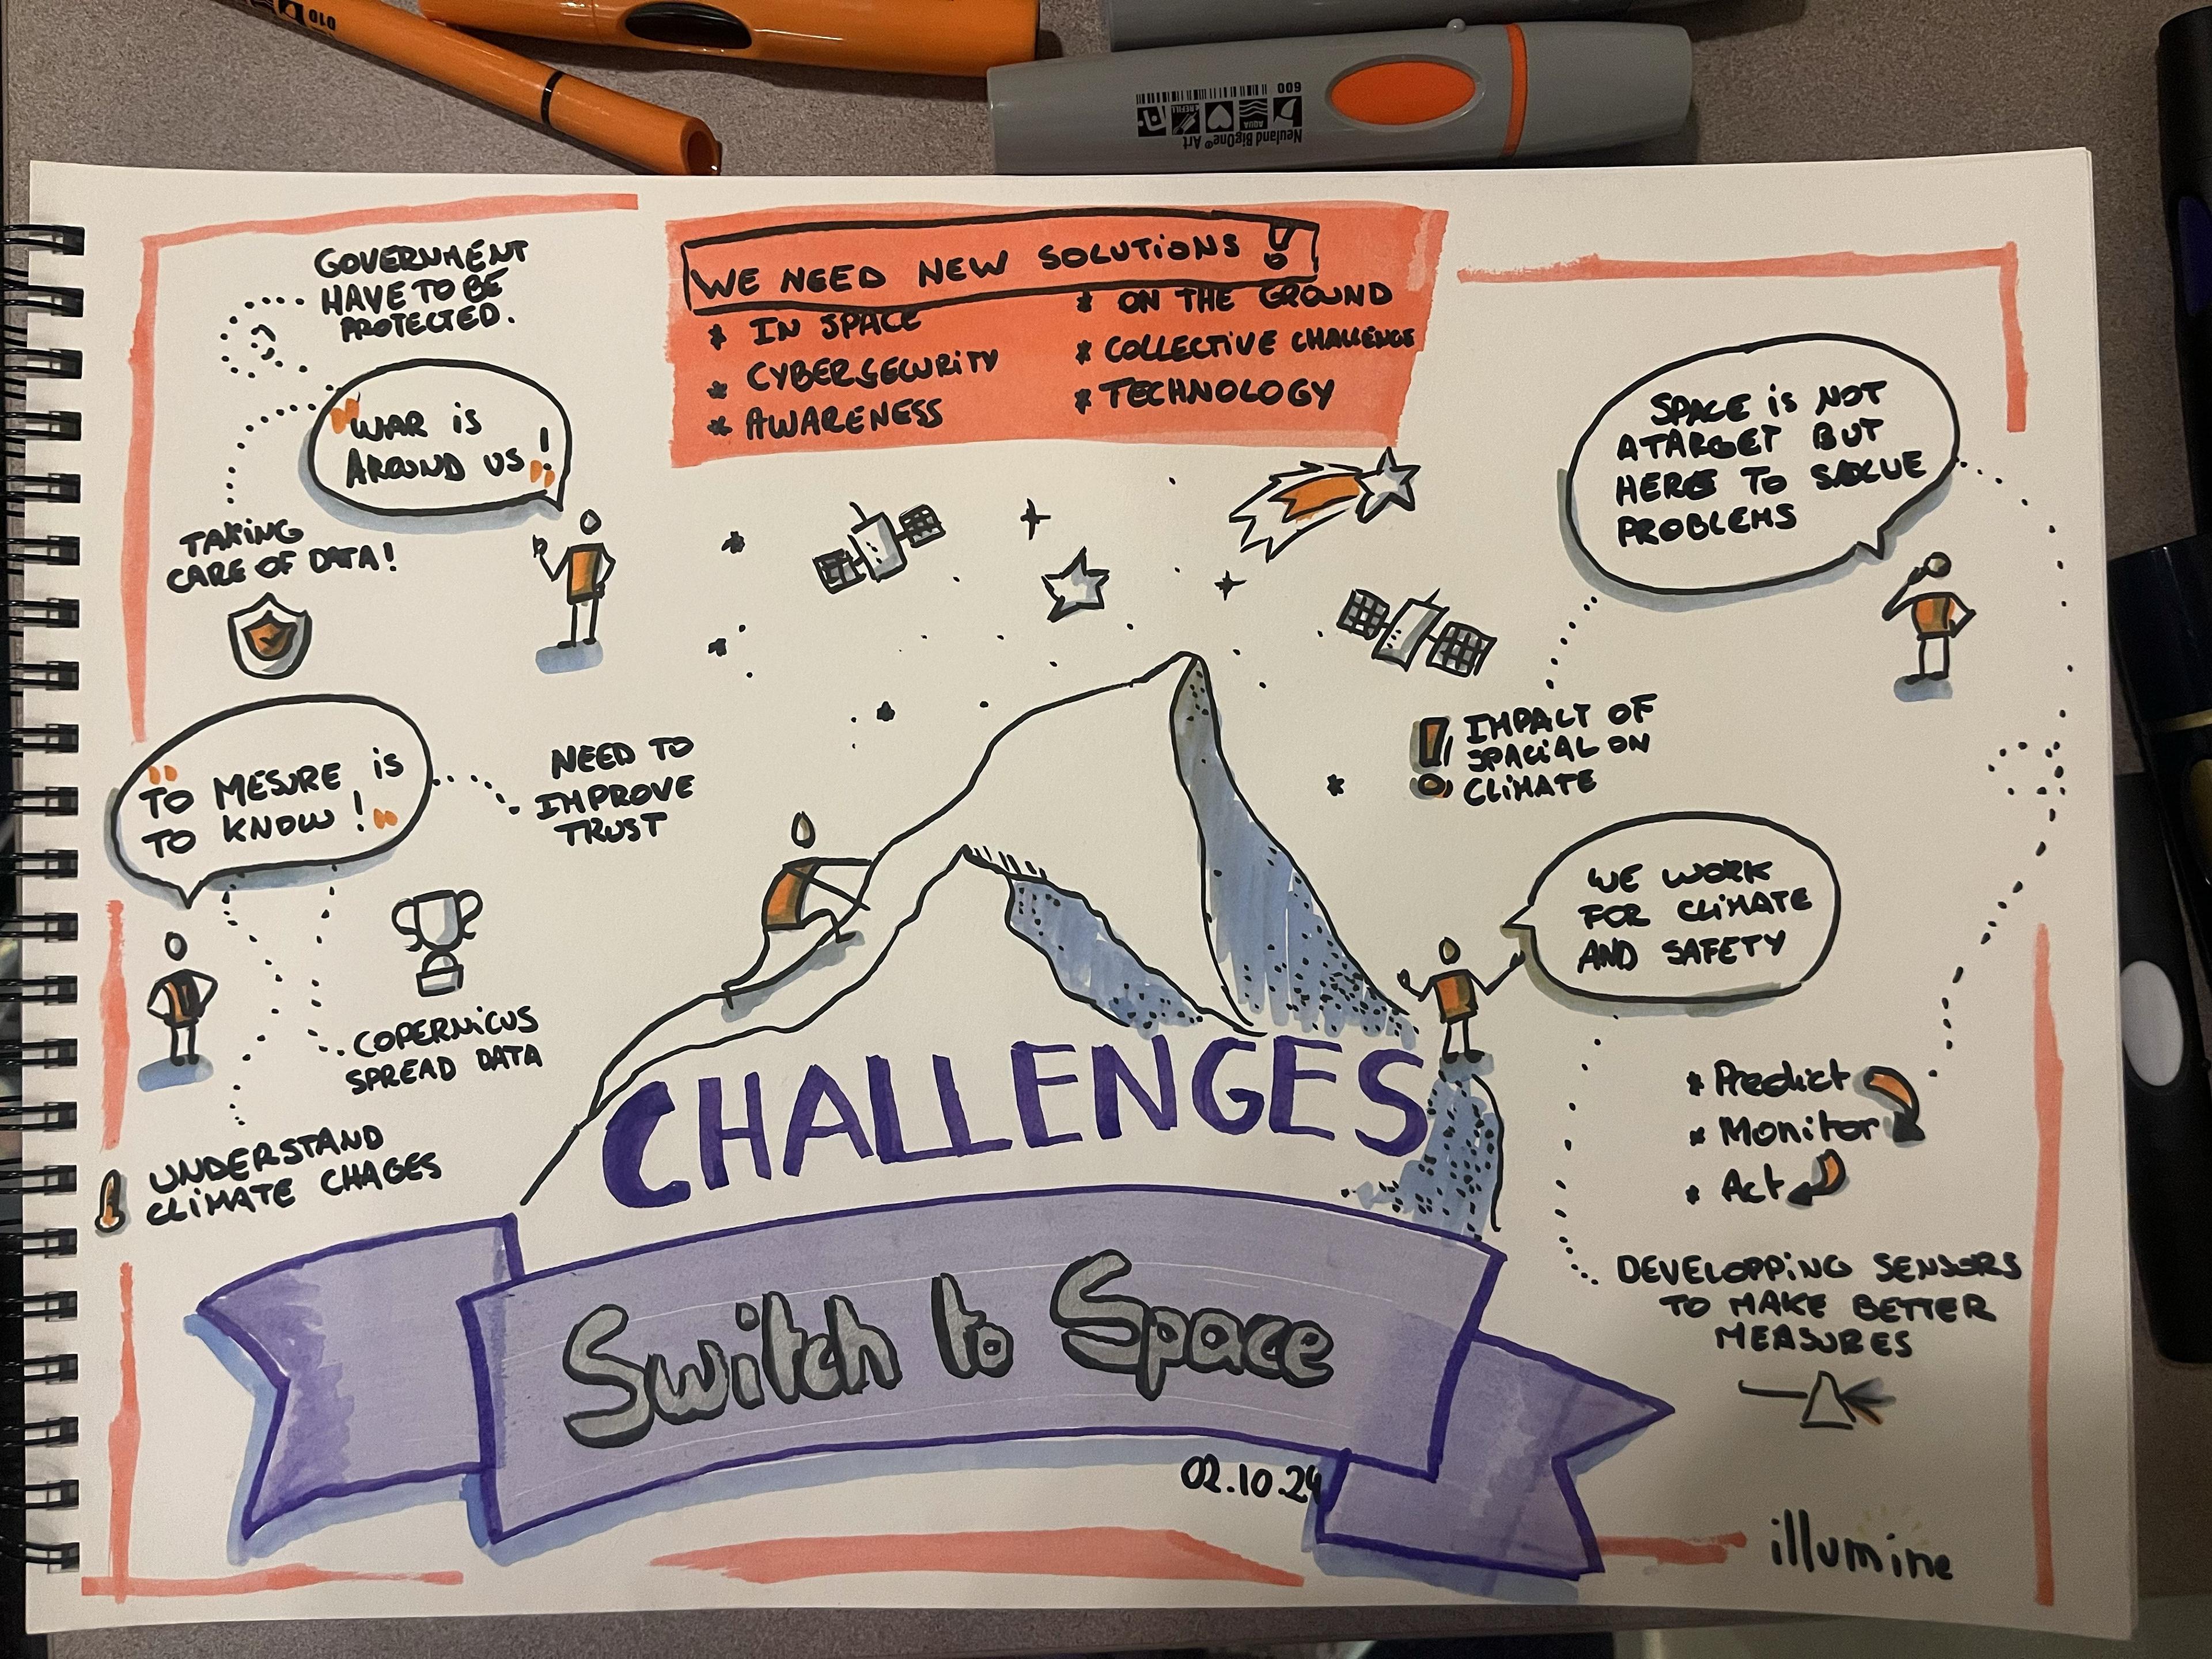 010
Neuland BigOne® Art
AQUA
REFILL
600
WE NEED NEW SOLUTIONS !
* IN SPACE
* CYBERSECURITY
* AWARENESS
* ON THE GROUND
* COLLECTIVE CHALLENGE
* TECHNOLOGY
GOVERNMENT
HAVE TO BE
PROTECTED.
"WAR is
AROUND US !"
TAKING
CARE OF DATA!
"TO MESURE is
TO KNOW !"
NEED TO
IMPROVE
TRUST
COPERNICUS
SPREAD DATA
UNDERSTAND
CLIMATE CHAGES
SPACE is NOT
A TARGET BUT
HERE TO SOLUE
PROBLEMS
! IMPACT OF
SPACIAL ON
CLIMATE
WE WORK
FOR CLIMATE
AND SAFETY
* Predict
* Monitor
* Act
DEVELOPPING SENSORS
TO MAKE BETTER
MEASURES
CHALLENGES
Switch to Space
02.10.24
illumine